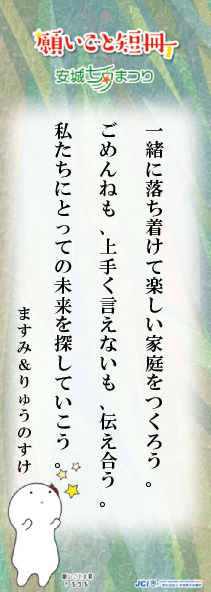 願いごと短冊
安城七夕まつり
一緒に落ち着けて楽しい家庭をつくろう。
ごめんねも、上手く言えないも、伝え合う。
私たちにとっての未来を探していこう。
ますみ&りゅうのすけ
JCI